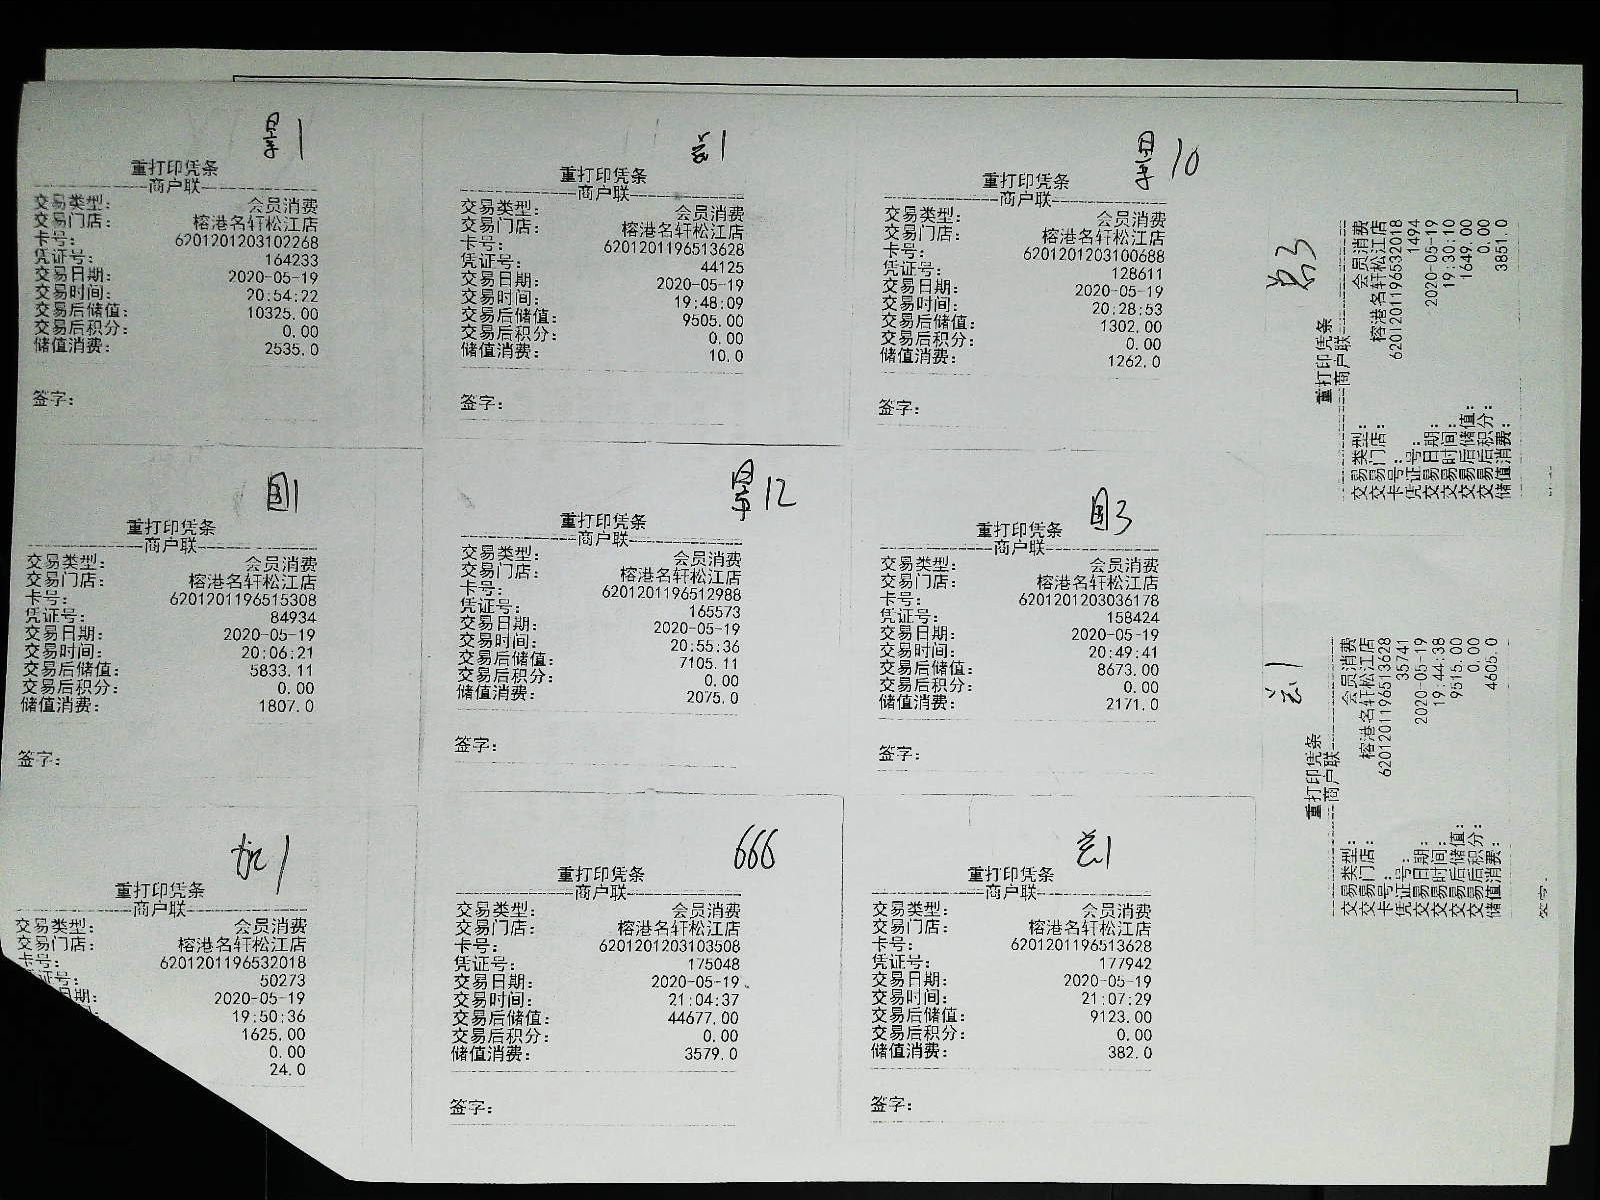 1
重打印凭条
商户联
交易类型： 会员消费
交易门店： 榕港名轩松江店
卡号： 6201201203102268
凭证号： 164233
交易日期： 2020-05-19
交易时间： 20:54:22
交易后储值： 10325.00
交易后积分： 0.00
储值消费： 2535.0
签字：
1
重打印凭条
商户联
交易类型： 会员消费
交易门店： 榕港名轩松江店
卡号： 6201201196513628
凭证号： 44125
交易日期： 2020-05-19
交易时间： 19:48:09
交易后储值： 9505.00
交易后积分： 0.00
储值消费： 10.0
签字：
10
重打印凭条
商户联
交易类型： 会员消费
交易门店： 榕港名轩松江店
卡号： 6201201203100688
凭证号： 128611
交易日期： 2020-05-19
交易时间： 20:28:53
交易后储值： 1302.00
交易后积分： 0.00
储值消费： 1262.0
签字：
3
重打印凭条
商户联
交易类型： 会员消费
交易门店： 榕港名轩松江店
卡号： 6201201196532018
凭证号： 1494
交易日期： 2020-05-19
交易时间： 19:30:10
交易后储值： 1649.00
交易后积分： 0.00
储值消费： 3851.0
1
重打印凭条
商户联
交易类型： 会员消费
交易门店： 榕港名轩松江店
卡号： 6201201196515308
凭证号： 84934
交易日期： 2020-05-19
交易时间： 20:06:21
交易后储值： 5833.11
交易后积分： 0.00
储值消费： 1807.0
签字：
12
重打印凭条
商户联
交易类型： 会员消费
交易门店： 榕港名轩松江店
卡号： 6201201196512988
凭证号： 165573
交易日期： 2020-05-19
交易时间： 20:55:36
交易后储值： 7105.11
交易后积分： 0.00
储值消费： 2075.0
签字：
3
重打印凭条
商户联
交易类型： 会员消费
交易门店： 榕港名轩松江店
卡号： 6201201203036178
凭证号： 158424
交易日期： 2020-05-19
交易时间： 20:49:41
交易后储值： 8673.00
交易后积分： 0.00
储值消费： 2171.0
签字：
1
重打印凭条
商户联
交易类型： 会员消费
交易门店： 榕港名轩松江店
卡号： 6201201196513628
凭证号： 35741
交易日期： 2020-05-19
交易时间： 19:44:38
交易后储值： 9515.00
交易后积分： 0.00
储值消费： 4605.0
签字：
1
重打印凭条
商户联
交易类型： 会员消费
交易门店： 榕港名轩松江店
卡号： 6201201196532018
证号： 50273
期： 2020-05-19
19:50:36
1625.00
0.00
24.0
666
重打印凭条
商户联
交易类型： 会员消费
交易门店： 榕港名轩松江店
卡号： 6201201203103508
凭证号： 175048
交易日期： 2020-05-19
交易时间： 21:04:37
交易后储值： 44677.00
交易后积分： 0.00
储值消费： 3579.0
签字：
1
重打印凭条
商户联
交易类型： 会员消费
交易门店： 榕港名轩松江店
卡号： 6201201196513628
凭证号： 177942
交易日期： 2020-05-19
交易时间： 21:07:29
交易后储值： 9123.00
交易后积分： 0.00
储值消费： 382.0
签字：